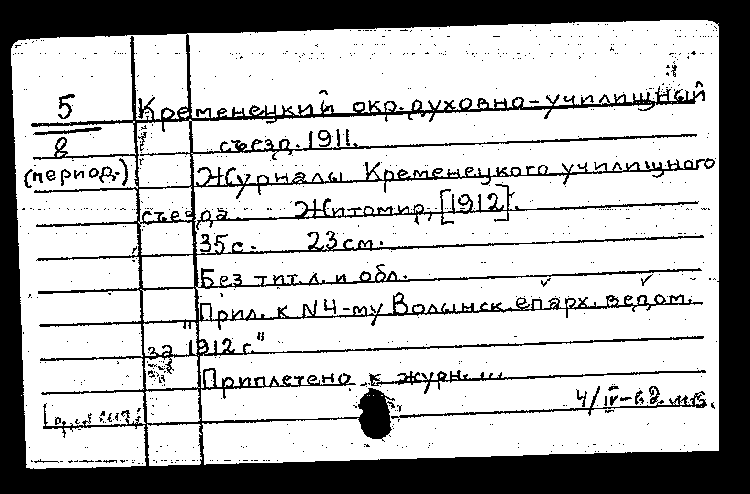 5
8
(период.)
Кременецкий окр. духовно-училищный
съезд. 1911.
Журналы Кременецкого училищного
съезда Житомир, [1912].
35с. 23см.
Без тит. л. и обл.
"Прил. к N4-му Волынск. епарх. ведом.
за 1912 г."
Приплетено к журн. ...
4/IV-62.